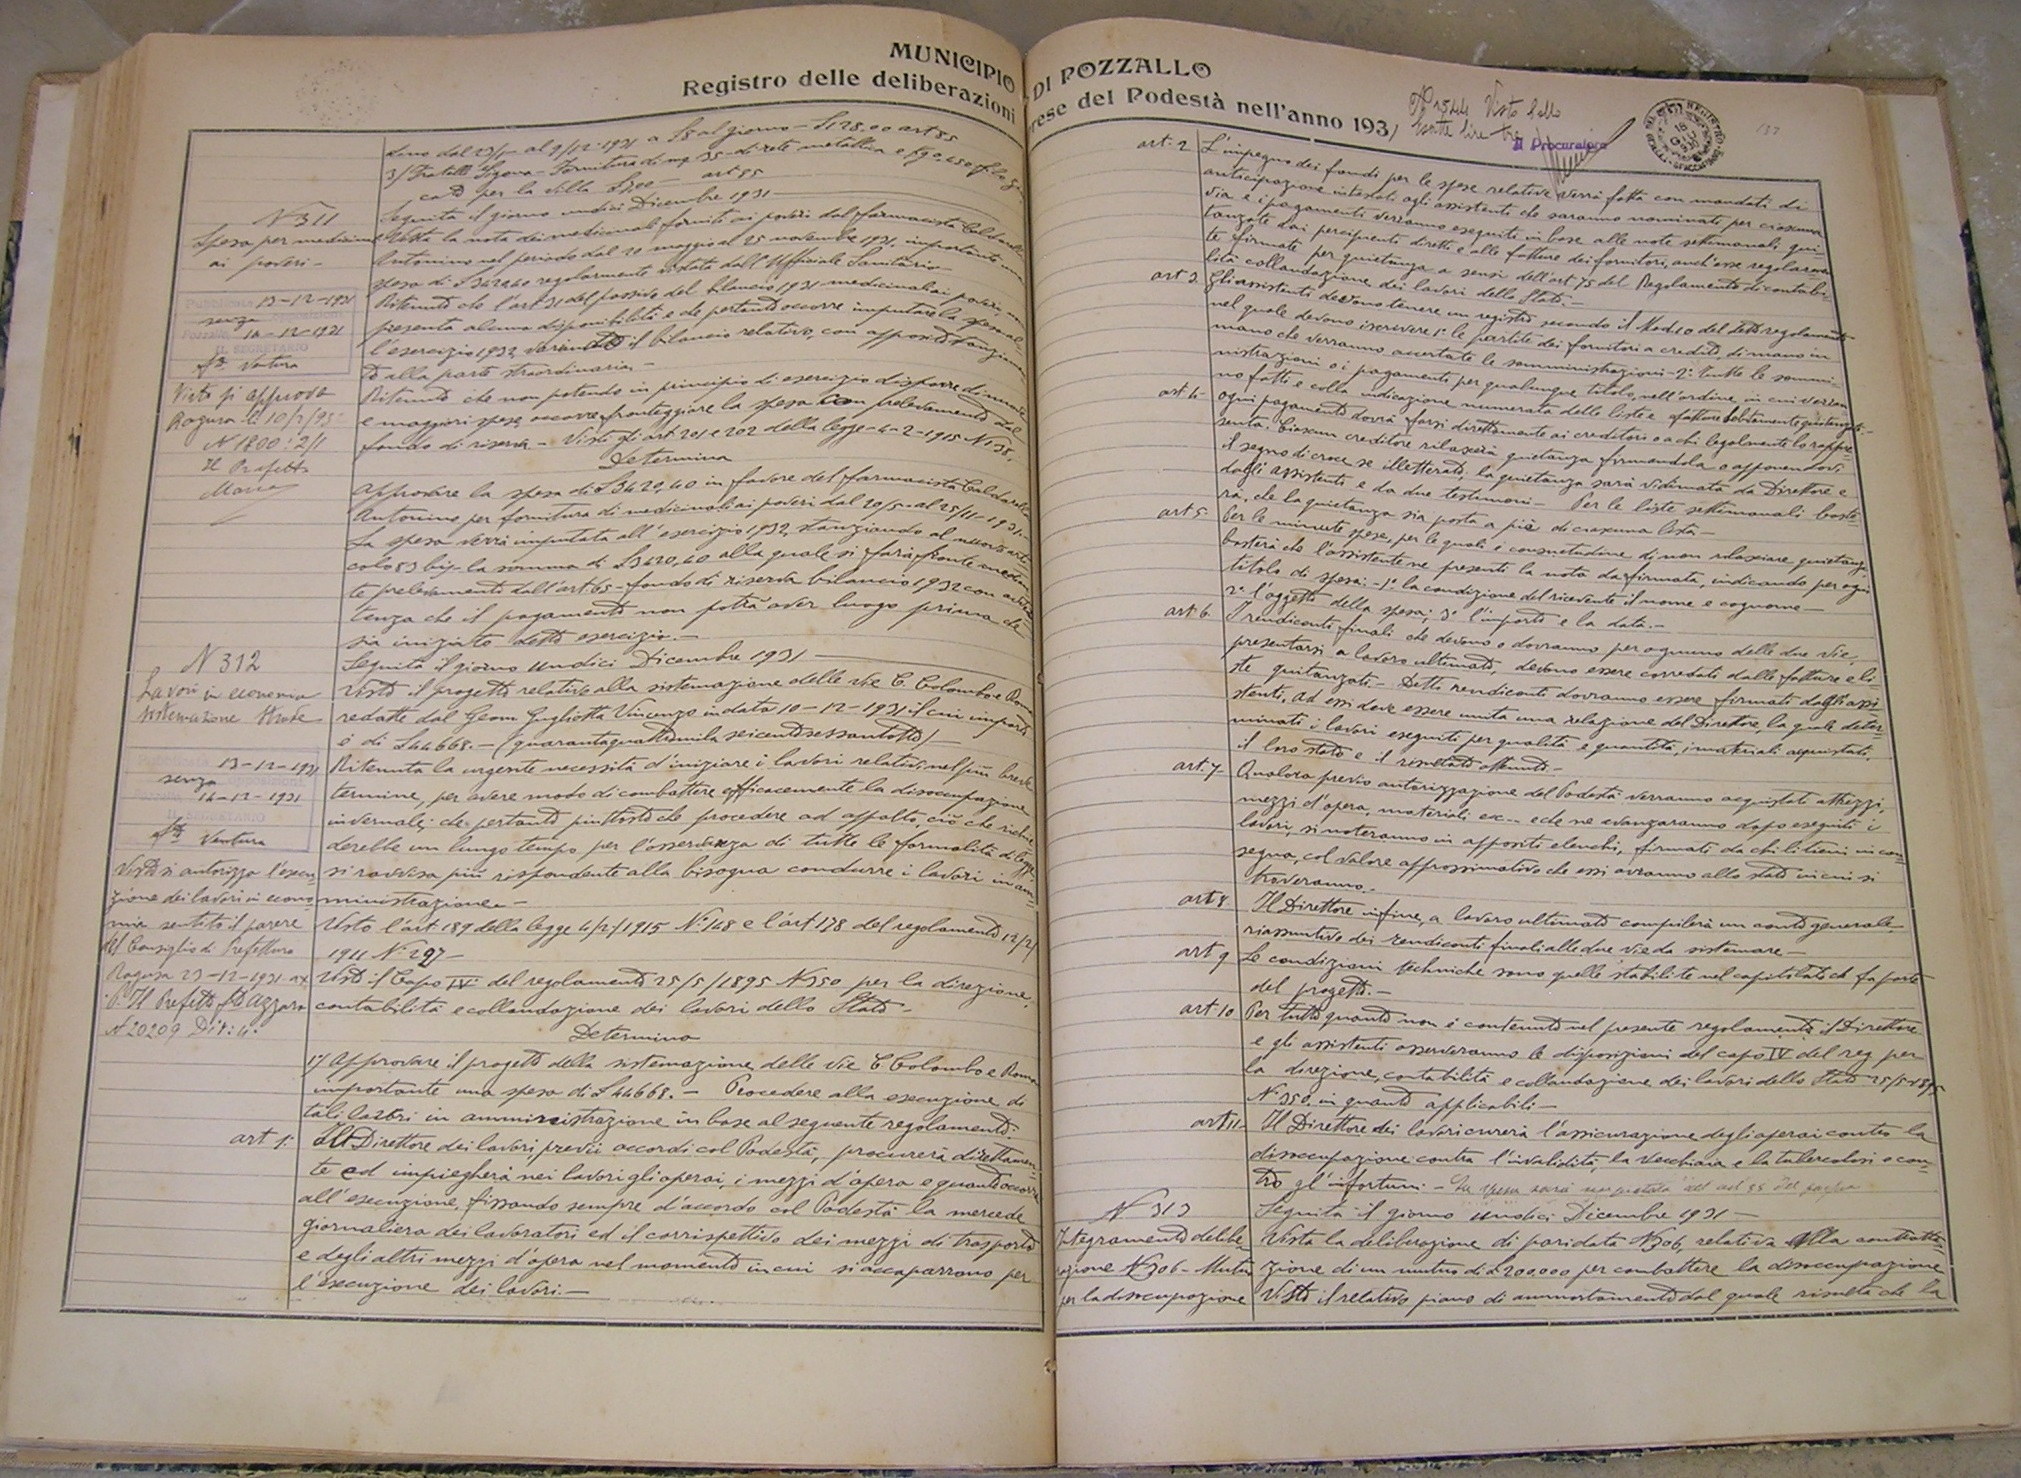 MUNICIPIO DI POZZALLO
Registro delle deliberazioni prese del Podestà nell'anno 1931
N 1544 Visto bollo
Esatte lire tre
Il Procuratore
137
dal 23/ al 9/12-1931 a £ 8 al giorno - £ 128.00 art 85
3/ Fratelli Fornitura di mq 35 di rete metallica e Kg
per la villa art 85
N 311
Spesa per medicine
ai poveri -
Seguita il giorno undici Dicembre 1931 -
Vista la nota dei medicinali forniti ai poveri dal farmacista
Antonino nel periodo dal 20 maggio al 25 novembre 1931, importante una
spesa di £ 3420,40 regolarmente vistata dall'Ufficiale Sanitario -
Ritenuto che l'art 31 del passivo del bilancio 1931 medicinali ai poveri, non
presenta alcuna disponibilità e che pertanto occorre imputare la spesa al-
l'esercizio 1932, variando il bilancio relativo, con apposito stanziamen-
to alla parte straordinaria -
Ritenuto che non potendo in principio di esercizio disporre di
e maggiori spese occorre fronteggiare la spesa con prelevamento dal
fondo di riserva - Visti gli art 201 e 202 della legge 4-2-1915 N 148.
Pubblicato 13-12-1931
senza opposizioni
Pozzallo, 14-12-1931
IL SEGRETARIO
fto Ventura
Visto si approva
Ragusa li 10/2/93
N 1800: 2/1
Il Prefetto
Determina
approvare la spesa di £ 3420,40 in favore del farmacista
Antonino per fornitura di medicinali ai poveri dal 20/5 al 25/11-1931 -
La spesa verrà imputata all'esercizio 1932, stanziando al nuovo arti-
colo 83 bis la somma di £ 3420,40 alla quale si farà fronte median-
te prelevamento dall'art 65 - fondo di riserva bilancio 1932 con avver-
tenza che il pagamento non potrà aver luogo prima che
sia iniziato detto esercizio. -
N 312
Lavori in economia
sistemazione strade
Seguita il giorno undici Dicembre 1931 -
Visto il progetto relativo alla sistemazione delle vie C. Colombo e Roma
redatto dal Geom Gugliotta Vincenzo in data 10-12-1931 il cui importo
è di £ 44668. - (quarantaquattromila seicentosessantotto) -
Ritenuta la urgente necessità d'iniziare i lavori relativi nel più breve
termine, per avere modo di combattere efficacemente la disoccupazione
invernale; che pertanto piuttosto che procedere ad appalto, ciò che richie-
derebbe un lungo tempo per l'osservanza di tutte le formalità di legge
si ravvisa più rispondente alla bisogna condurre i lavori in am-
ministrazione. -
13-12-1931
senza
14-12-1931
IL SEGRETARIO
fto Ventura
Visto si autorizza l'esecu-
zione dei lavori in econo-
mia sentito il parere
del Consiglio di Prefettura
Ragusa 23-12-1931 ax
p. Il Prefetto fto Azzaro
N 20209 Div: 4ª
Visto l'art. 189 della legge 4/2/1915 N. 148 e l'art 178 del regolamento 12/2/
1911 N. 297 -
Visto il Capo IV del regolamento 25/5/1895 N 350 per la direzione,
contabilità e collaudazione dei lavori dello Stato -
Determina
1°/ Approvare il progetto della sistemazione delle vie C Colombo e Roma
importante una spesa di £ 44668. - Procedere alla esecuzione di
tali lavori in amministrazione in base al seguente regolamento:
art 1:
Il Direttore dei lavori, previi accordi col Podestà, procurerà direttamen-
te ed impiegherà nei lavori gli operai, i mezzi d'opera e quanto occorra
all'esecuzione, fissando sempre d'accordo col Podestà la mercede
giornaliera dei lavoratori ed il corrispettivo dei mezzi di trasporto
e degli altri mezzi d'opera nel momento in cui si accaparrano per
l'esecuzione dei lavori. -
art. 2
L'impegno dei fondi per le spese relative verrà fatto con mandati di
anticipazione intestati agli assistenti che saranno nominati per ciascuna
via e i pagamenti verranno eseguiti in base alle note settimanali, quie-
tanzate dai percipienti diretti e alle fatture dei fornitori, anch'esse regolarmen-
te firmate per quietanza a sensi dell'art 75 del Regolamento di contabi-
lità collaudazione dei lavori dello Stato -
art 3.
Gli assistenti devono tenere un registro secondo il Mod 10 del detto regolamento
nel quale devono iscrivere 1° le partite dei fornitori a credito di mano in
mano che verranno accertate le somministrazioni - 2° tutte le sommi-
nistrazioni o i pagamenti per qualunque titolo, nell'ordine in cui verran-
no fatti e colla indicazione numerata delle liste e fatture debitamente quietanzate. -
art 4 -
Ogni pagamento dovrà farsi direttamente ai creditori o a chi legalmente lo rappre-
senta. Ciascun creditore rilascierà quietanza firmandola o apponendovi
il segno di croce se illetterato; la quietanza sarà vidimata da Direttore e
dagli assistenti e da due testimoni - Per le liste settimanali baste-
rà, che la quietanza sia posta a piè di ciascuna lista -
art 5.
Per le minute spese, per le quali è consuetudine di non rilasciare quietanza,
basterà che l'assistente ne presenti la nota da firmata, indicando per ogni
titolo di spesa: - 1° la condizione del ricevente il nome e cognome -
2° l'oggetto della spesa; 3° l'importo e la data. -
art 6.
I rendiconti finali che devono o dovranno per ognuno delle due vie,
presentarsi a lavoro ultimato, devono essere corredati dalle fatture e li-
ste quitanzati - Detti rendiconti dovranno essere firmati dagli assi-
stenti, ad essi deve essere unita una relazione del Direttore, la quale deter-
minati i lavori eseguiti per qualità e quantità, i materiali acquistati,
il loro stato e il risultato ottenuto -
art. 7 -
Qualora previo autorizzazione del Podestà verranno acquistati attrezzi,
mezzi d'opera, materiali ec... e che ne avanzaranno dopo eseguiti i
lavori, si noteranno in appositi elenchi, firmati da chi li tiene in con-
segna, col valore approssimativo che essi avranno allo stato in cui si
troveranno -
art 8
Il Direttore infine, a lavoro ultimato compilerà un conto generale
riassuntivo dei rendiconti finali alle due vie da sistemare -
art 9
Le condizioni techniche sono quelle stabilite nel capitolato ch fa parte
del progetto. -
art 10
Per tutto quanto non è contenuto nel presente regolamento il Direttore
e gli assistenti osserveranno le disposizioni del capo IV del reg per
la direzione, contabilità e collaudazione dei lavori dello Stato 25/5 1895
N. 350. in quanto applicabili -
art 11 -
Il Direttore dei lavori curerà l'assicurazione degli operai contro la
disoccupazione contro l'invalidità, la vecchiaia e la tubercolosi e con-
tro gl'infortuni - La spesa sarà imputata all'art 95 del
N 313
Integramento delibe-
razione N 306 - Mutuo
per la disoccupazione
Seguita il giorno undici Dicembre 1931 -
Vista la deliberazione di pari data N 306, relativa alla contratta-
zione di un mutuo di £ 200.000 per combattere la disoccupazione
Visto il relativo piano di ammortamento dal quale risulta ch la